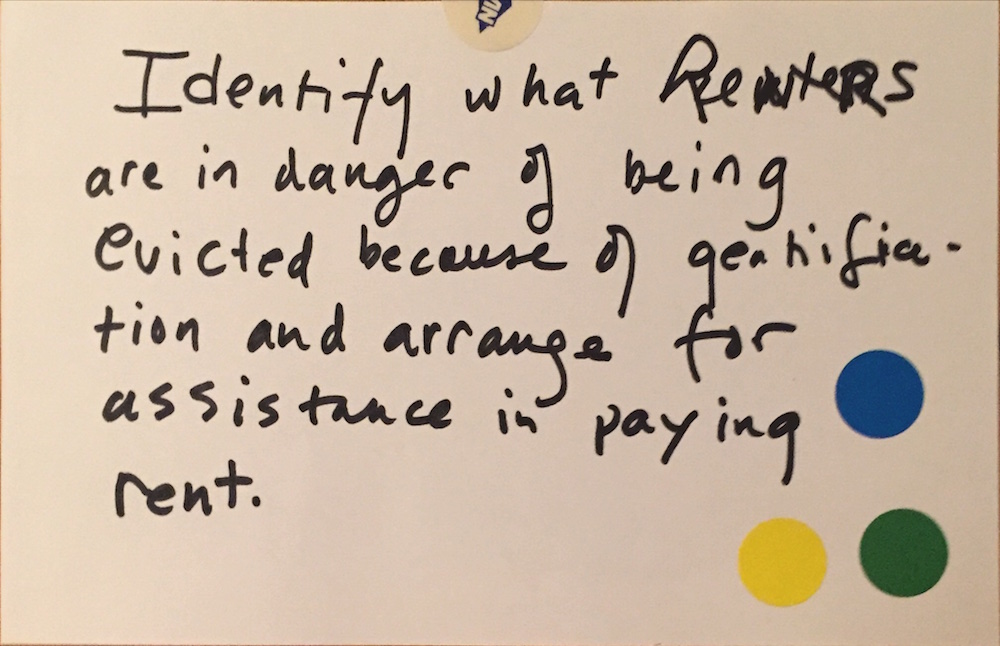 Identify what Renters
are in danger of being
evicted because of gentrifica-
tion and arrange for
assistance in paying
rent.